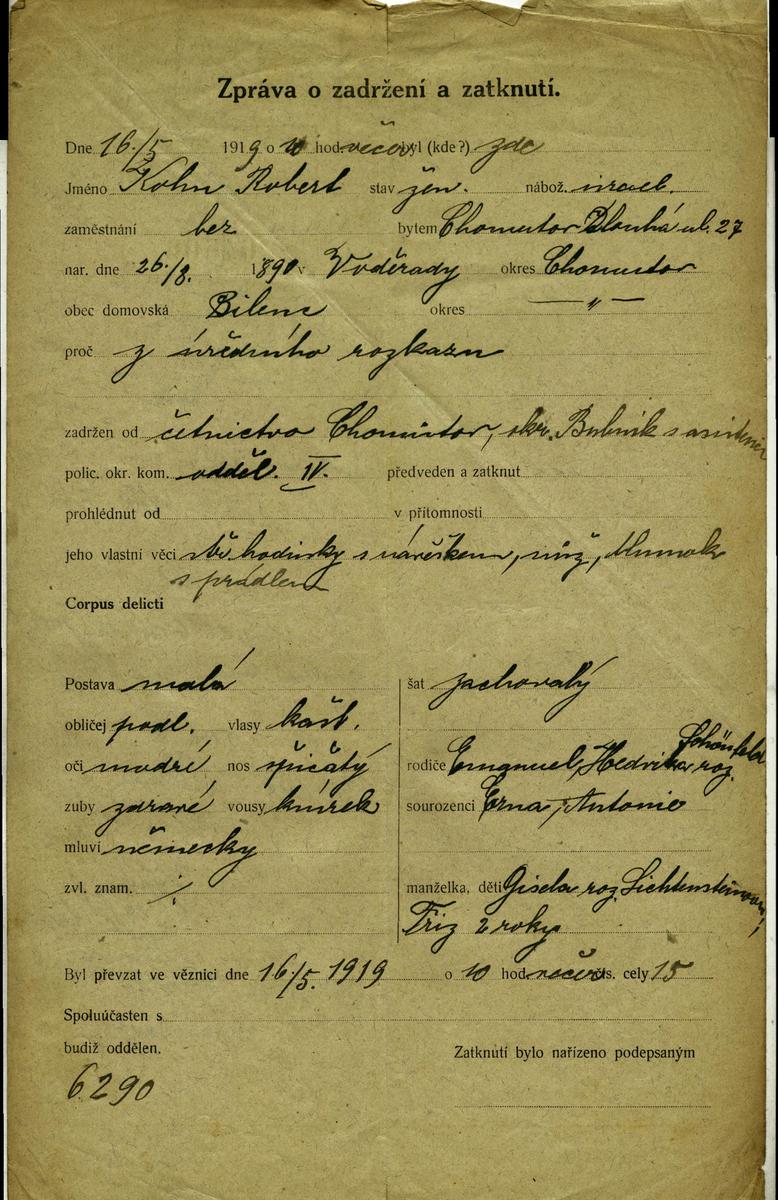 Zpráva o zadržení a zatknutí.
Dne 16./5 1919 o 10 hod. večer byl (kde?) zde
Jméno Kohn Robert stav žen. nábož. israel.
zaměstnání bez bytem Chomutov Dlouhá ul. 27
nar. dne 26./8. 1890 v Voděrady okres Chomutov
obec domovská Bilenc okres — „ —
proč z úředního rozkazu
zadržen od četnictvo Chomutov, okr. Bubník s asistencí
polic. okr. kom. odděl. IV. předveden a zatknut
prohlédnut od v přítomnosti
jeho vlastní věci stř. hodinky s náreškem, nůž,
s prádlem
Corpus delicti
Postava malá šat zachovalý
obličej podl. vlasy kašt.
oči modré nos špičatý rodiče Emanuel, Hedvika roz. Schönfeld
zuby zdravé vousy knírek sourozenci Erna, Antonie
mluví německy
zvl. znam. ./. manželka, děti Gisela roz. Lichtensteinova,
Friz 2 roky
Byl převzat ve věznici dne 16./5. 1919 o 10 hod. večer čís. cely 15
Spoluúčasten s
budiž oddělen. Zatknutí bylo nařízeno podepsaným
6290